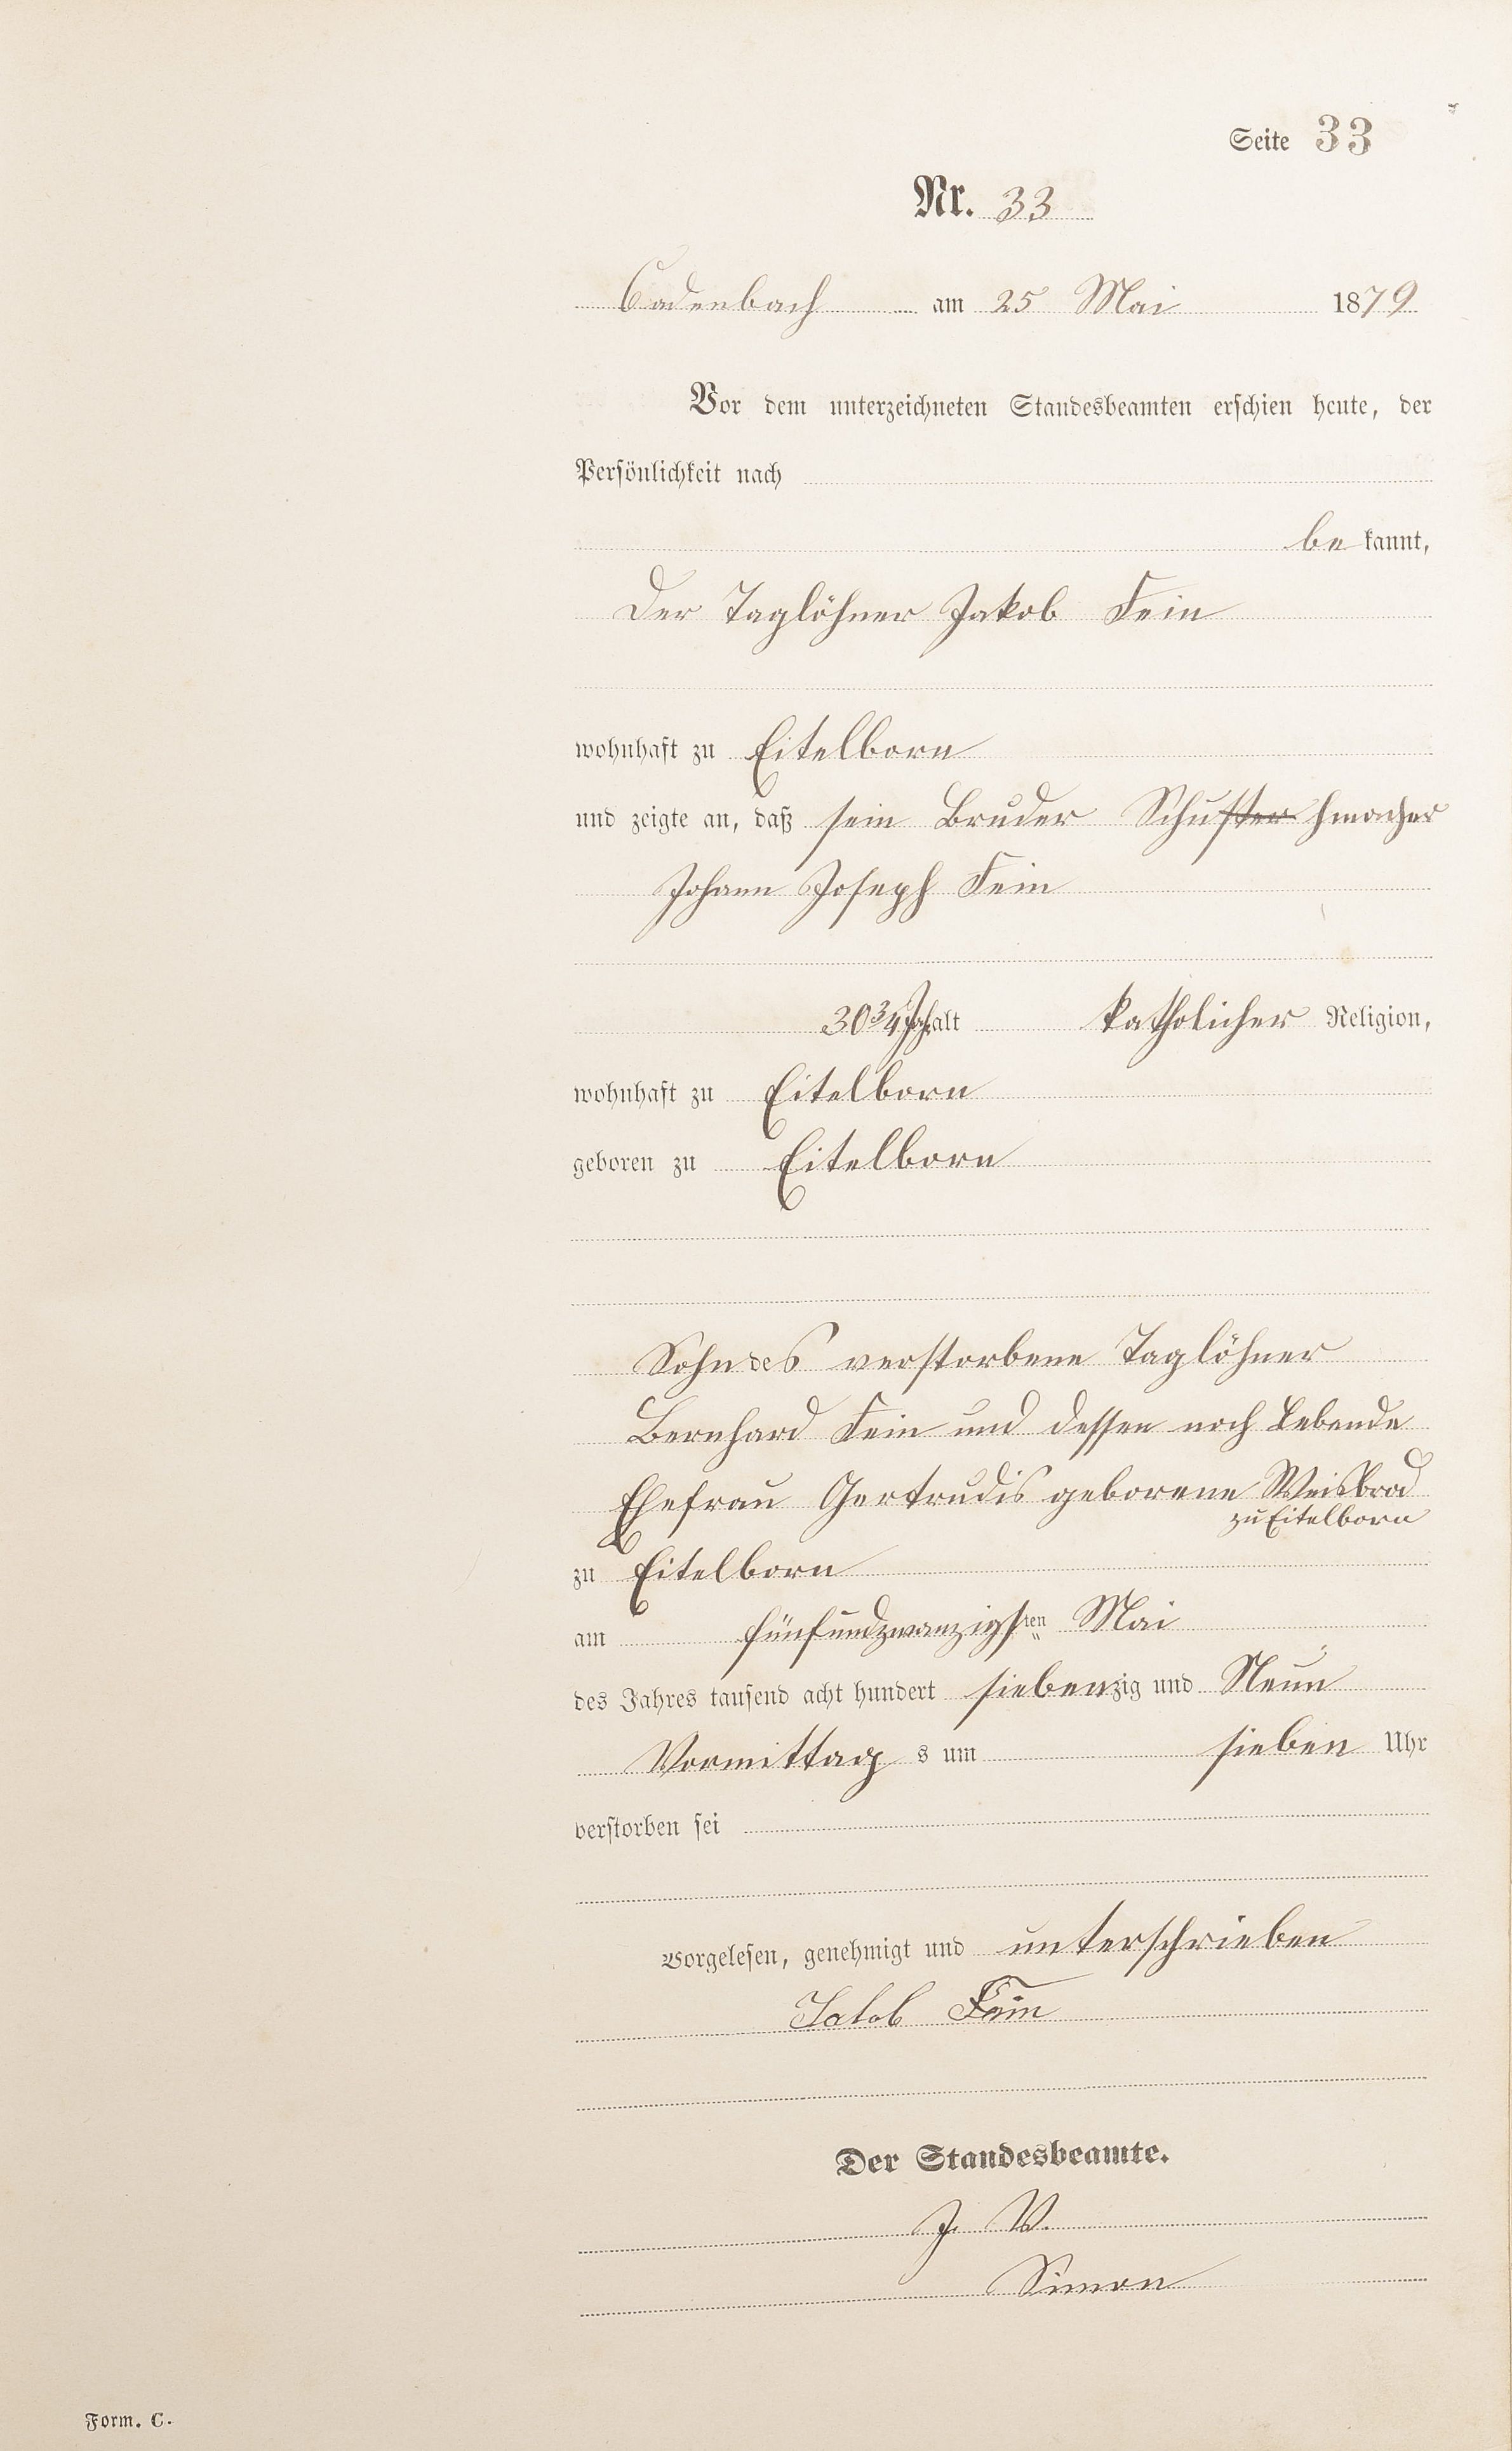 Seite 33
Nr. 33
Cadenbach am 25 Mai 1879
Vor dem unterzeichneten Standesbeamten erschien heute, der
Persönlichkeit nach
be kannt,
Der Taglöhner Jakob Fein
wohnhaft zu Eitelborn
und zeigte an, daß sein Bruder Schuster hmacher
Johann Joseph Fein
30 3/4 Jah. alt katholicher Religion,
wohnhaft zu Eitelborn
geboren zu Eitelborn
Sohn des verstorbene Taglöhner
Bernhard Fein und dessen noch lebende
Ehefrau Gertrudis geborene Weisbrod
zu Eitelborn
zu Eitelborn
am fünfundzwanzigsten Mai
des Jahres tausend acht hundert siebenzig und Neun
Vormittag s um sieben Uhr
verstorben sei
Vorgelesen, genehmigt und unterschrieben
Jakob Fein
Der Standesbeamte.
J. V.
Simon
Form. C.